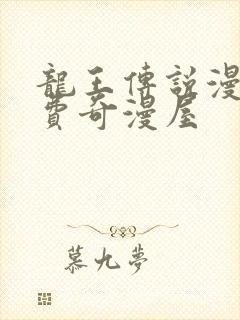 龍王傳說漫
費奇漫屋
慕九夢